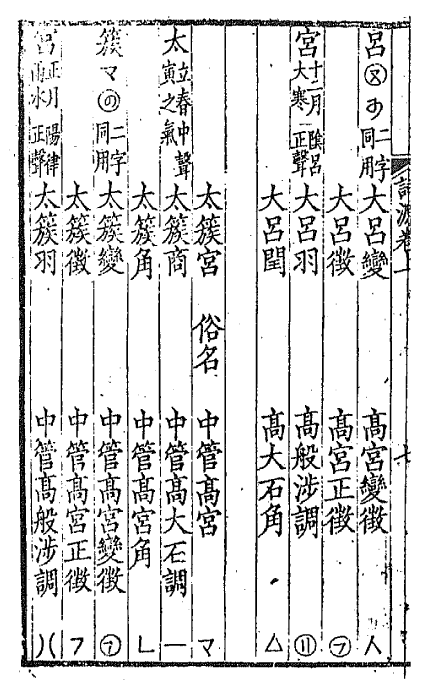 詞源卷上 七
呂 ㊛ 二字同用 大呂變 高宮變徵 人
大呂徵 高宮正徵 ㋫
宮 十二月大寒 陰呂正聲 大呂羽 高般涉調 ⑪
大呂閏 高大石角 △
太簇宮 俗名 中管高宮 マ
太 立春中聲寅之氣 太簇商 中管高大石調 一
太簇角 中管高宮角 ㄴ
簇 マ ㋨ 二字同用 太簇變 中管高宮變徵 ㋫
太簇徵 中管高宮正徵 フ
宮 正月雨水 陽律正聲 太簇羽 中管高般涉調 )(